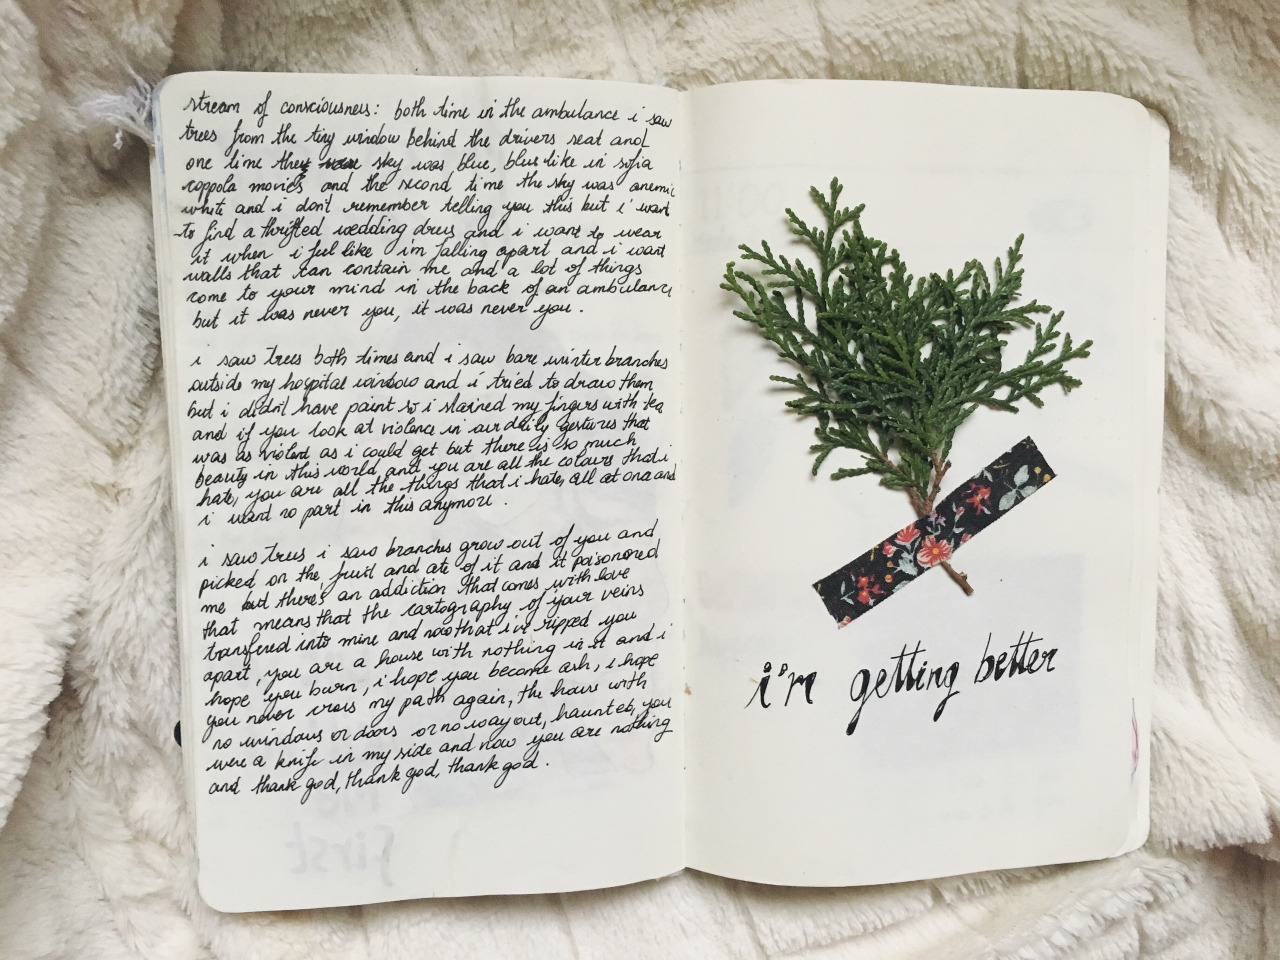 stream of consciousness: both time in the ambulance i saw
trees from the tiny window behind the drivers seat and
one time they sky was blue, blue like in sofia
coppola movies and the second time the sky was anemic
white and i don't remember telling you this but i want
to find a thrifted wedding dress and i want to wear
it when i feel like i'm falling apart and i want
walls that can contain me and a lot of things
come to your mind in the back of an ambulance
but it was never you, it was never you.
i saw trees both times and i saw bare winter branches
outside my hospital window and i tried to draw them
but i didn't have paint so i stained my fingers with tea
and if you look at violence in our daily gestures that
was as violent as i could get but there is so much
beauty in this world and you are all the colours that i
hate, you are all the things that i hate, all at once and
i want no part in this anymore.
i saw trees i saw branches grow out of you and
picked on the fruit and ate of it and it poisonored
me but there's an addiction that comes with love
that means that the cartography of your veins
transfered into mine and now that i've ripped you
apart, you are a house with nothing in it and i
hope you burn, i hope you become ash, i hope
you never cross my path again, the house with
no windows or doors or no way out, haunted, you
were a knife in my side and now you are nothing
and thank god, thank god, thank god.
i'm getting better
first